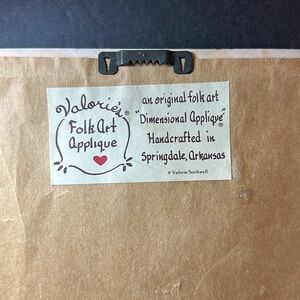 Valorie's®
Folk Art
Applique
an original folk art
"Dimensional Applique"®
Handcrafted in
Springdale, Arkansas
© Valorie Sockwell